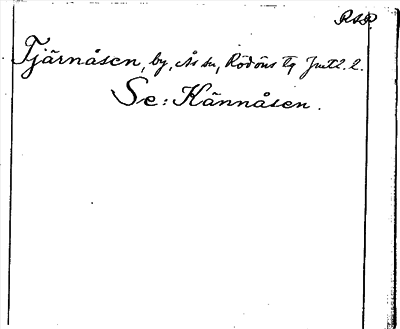 R.A.R.
Tjärnåsen, by, Ås sn, Rödöns tg Jmtl. l.
Se: Kännåsen.